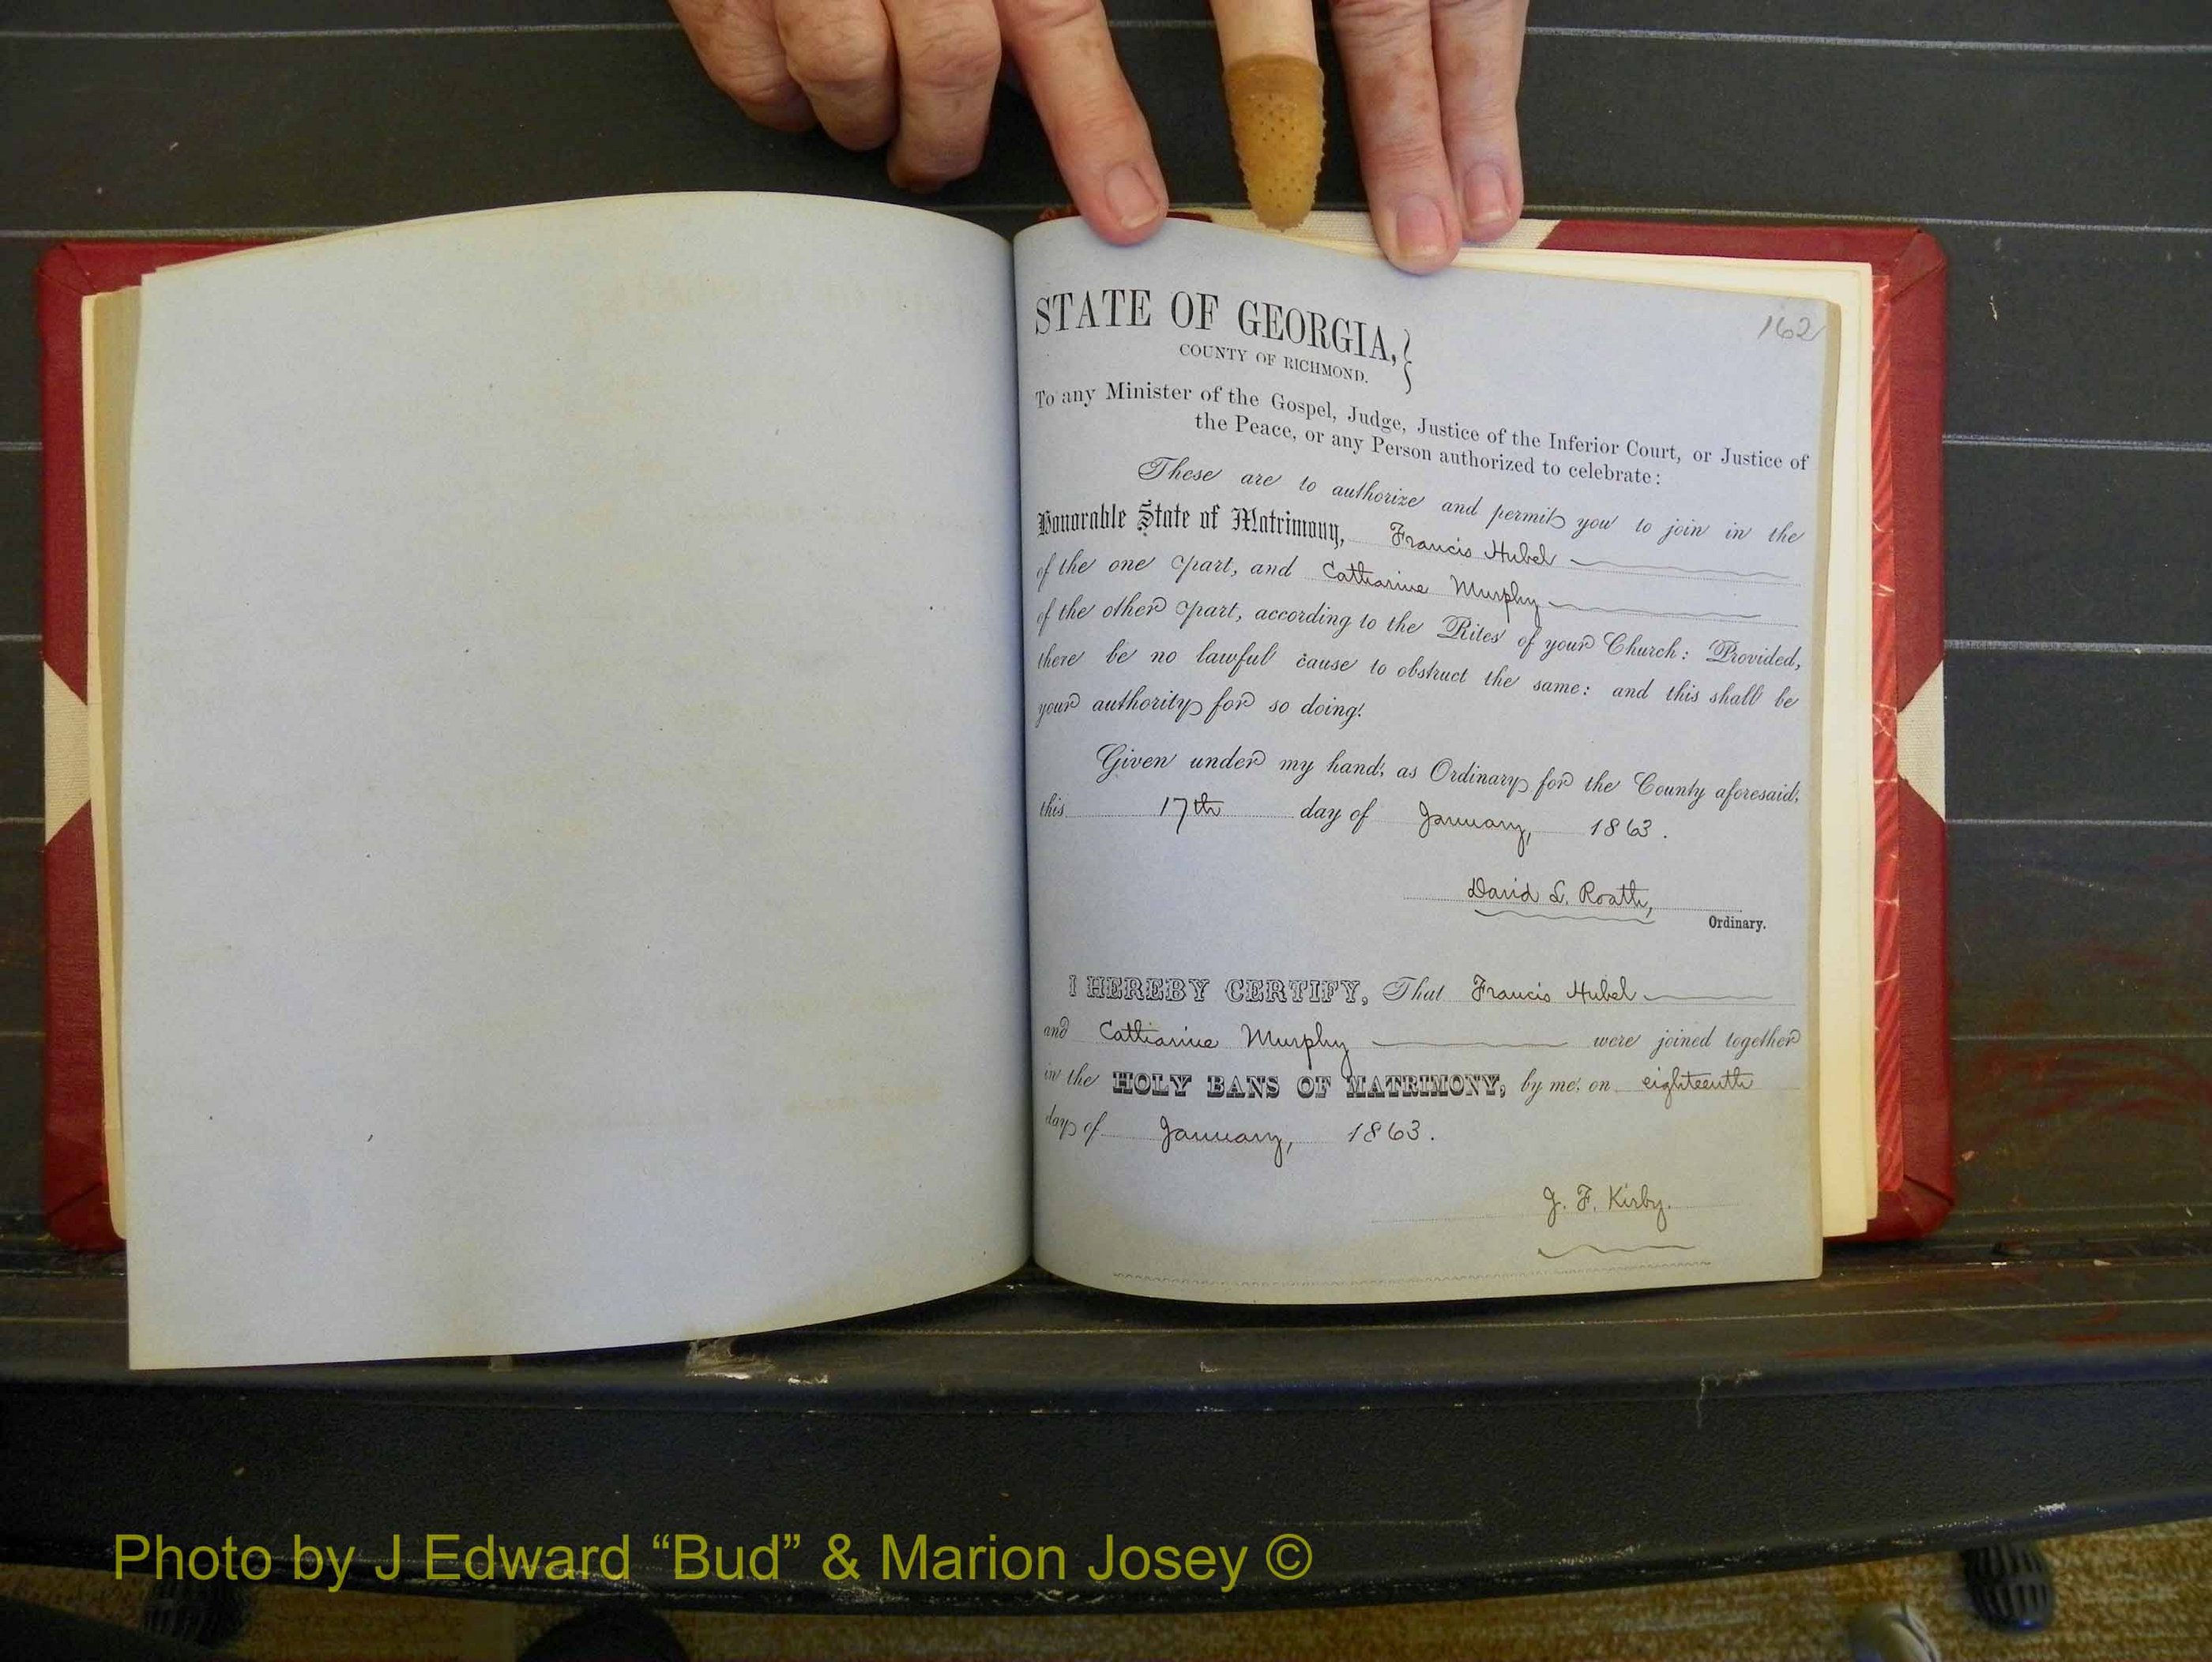 162
STATE OF GEORGIA,
COUNTY OF RICHMOND.
To any Minister of the Gospel, Judge, Justice of the Inferior Court, or Justice of
the Peace, or any Person authorized to celebrate:
These are to authorize and permit you to join in the
Honorable State of Matrimony, Francis Hubel
of the one part, and Catharine Murphy
of the other part, according to the Rites of your Church: Provided,
there be no lawful cause to obstruct the same: and this shall be
your authority for so doing.
Given under my hand, as Ordinary for the County aforesaid,
this 17th day of January, 1863.
David L. Roath,
Ordinary.
I HEREBY CERTIFY, That Francis Hubel
and Catharine Murphy were joined together
in the HOLY BANS OF MATRIMONY, by me, on eighteenth
day of January, 1863.
J. F. Kirby.
Photo by J Edward “Bud” & Marion Josey ©